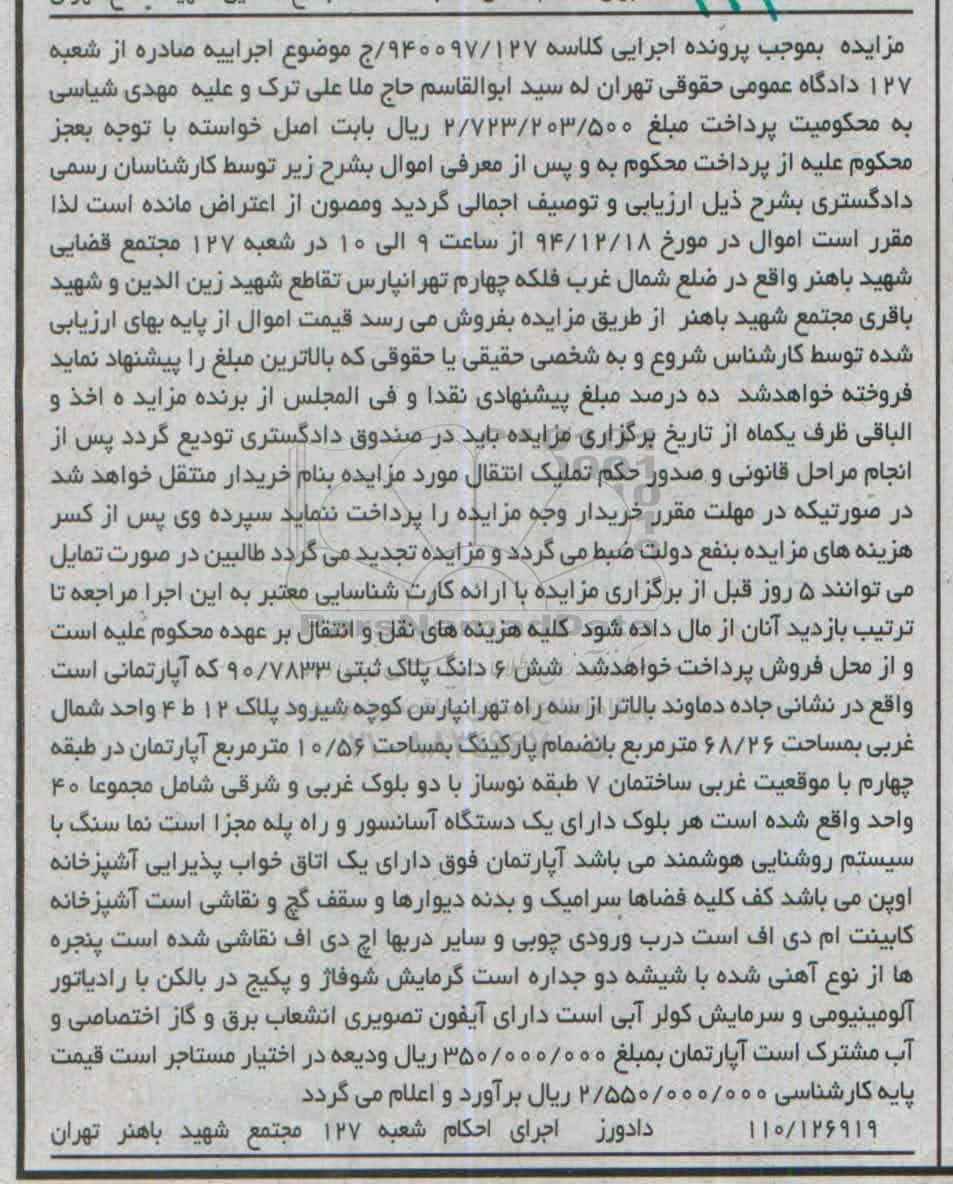 مزایده بموجب پرونده اجرایی کلاسه ۹۴۰۰۹۷/۱۲۷/ج موضوع اجراییه صادره از شعبه
۱۲۷ دادگاه عمومی حقوقی تهران له سید ابوالقاسم حاج ملا علی ترک و علیه مهدی شیاسی
به محکومیت پرداخت مبلغ ۲/۷۲۳/۲۰۳/۵۰۰ ریال بابت اصل خواسته با توجه بعجز
محکوم علیه از پرداخت محکوم به و پس از معرفی اموال بشرح زیر توسط کارشناسان رسمی
دادگستری بشرح ذیل ارزیابی و توصیف اجمالی گردید ومصون از اعتراض مانده است لذا
مقرر است اموال در مورخ ۹۴/۱۲/۱۸ از ساعت ۹ الی ۱۰ در شعبه ۱۲۷ مجتمع قضایی
شهید باهنر واقع در ضلع شمال غرب فلکه چهارم تهرانپارس تقاطع شهید زین الدین و شهید
باقری مجتمع شهید باهنر از طریق مزایده بفروش می رسد قیمت اموال از پایه بهای ارزیابی
شده توسط کارشناس شروع و به شخصی حقیقی یا حقوقی که بالاترین مبلغ را پیشنهاد نماید
فروخته خواهدشد ده درصد مبلغ پیشنهادی نقدا و فی المجلس از برنده مزاید ه اخذ و
الباقی ظرف یکماه از تاریخ برگزاری مزایده باید در صندوق دادگستری تودیع گردد پس از
انجام مراحل قانونی و صدور حکم تملیک انتقال مورد مزایده بنام خریدار منتقل خواهد شد
در صورتیکه در مهلت مقرر خریدار وجه مزایده را پرداخت ننماید سپرده وی پس از کسر
هزینه های مزایده بنفع دولت ضبط می گردد و مزایده تجدید می گردد طالبین در صورت تمایل
می توانند ۵ روز قبل از برگزاری مزایده با ارائه کارت شناسایی معتبر به این اجرا مراجعه تا
ترتیب بازدید آنان از مال داده شود کلیه هزینه های نقل و انتقال بر عهده محکوم علیه است
و از محل فروش پرداخت خواهدشد شش ۶ دانگ پلاک ثبتی ۹۰/۷۸۳۳ که آپارتمانی است
واقع در نشانی جاده دماوند بالاتر از سه راه تهرانپارس کوچه شیرود پلاک ۱۲ ط ۴ واحد شمال
غربی بمساحت ۶۸/۲۶ مترمربع بانضمام پارکینگ بمساحت ۱۰/۵۶ مترمربع آپارتمان در طبقه
چهارم با موقعیت غربی ساختمان ۷ طبقه نوساز با دو بلوک غربی و شرقی شامل مجموعا ۴۰
واحد واقع شده است هر بلوک دارای یک دستگاه آسانسور و راه پله مجزا است نما سنگ با
سیستم روشنایی هوشمند می باشد آپارتمان فوق دارای یک اتاق خواب پذیرایی آشپزخانه
اوپن می باشد کف کلیه فضاها سرامیک و بدنه دیوارها و سقف گچ و نقاشی است آشپزخانه
کابینت ام دی اف است درب ورودی چوبی و سایر دربها اچ دی اف نقاشی شده است پنجره
ها از نوع آهنی شده با شیشه دو جداره است گرمایش شوفاژ و پکیج در بالکن با رادیاتور
آلومینیومی و سرمایش کولر آبی است دارای آیفون تصویری انشعاب برق و گاز اختصاصی و
آب مشترک است آپارتمان بمبلغ ۳۵۰/۰۰۰/۰۰۰ ریال ودیعه در اختیار مستاجر است قیمت
پایه کارشناسی ۲/۵۵۰/۰۰۰/۰۰۰ ریال برآورد و اعلام می گردد
۱۱۰/۱۲۶۹۱۹ دادورز اجرای احکام شعبه ۱۲۷ مجتمع شهید باهنر تهران
ParsNamadData